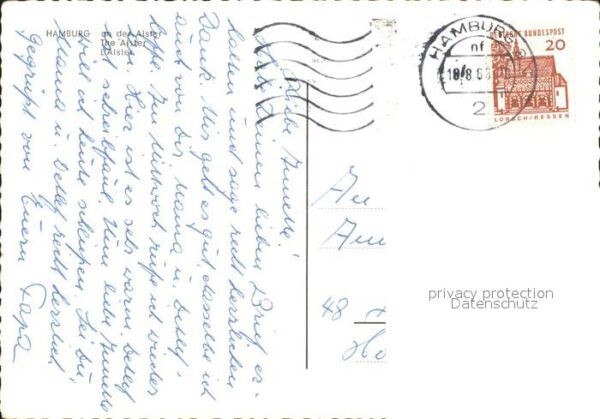 HAMBURG an der Alster
The Alster
L'Alster
Liebe Annette!
Habe Deinen lieben Brief er-
halten und sage recht herzlichen
Dank. Mir geht es gut, dasselbe ich
auch von Dir, Mama u. Detlef,
hoffe. Am Mittwoch rufe ich wieder
an. Hier ist es sehr warm. Detlef
will ich heute schreiben. Sei Du
Mama u. Detlef recht herzlich
gegrüßt von Euerm Papa
HAMBURG
nf
2
DEUTSCHE BUNDESPOST
20
LORSCH/HESSEN
An
48
privacy protection
Datenschutz